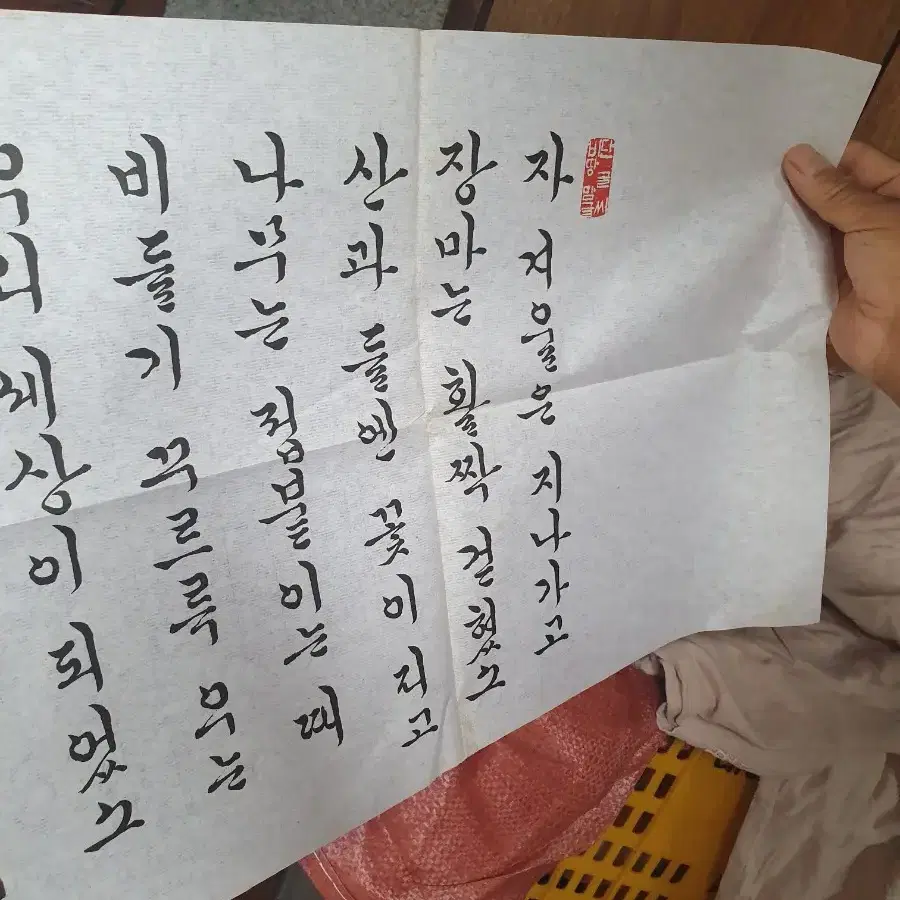 자 겨울은 지나가고
장마는 활짝 걷혔소
산과 들엔 꽃이 피고
나무는 접붙이는 때
비둘기 꾸르륵 우는
우리 세상이 되었소